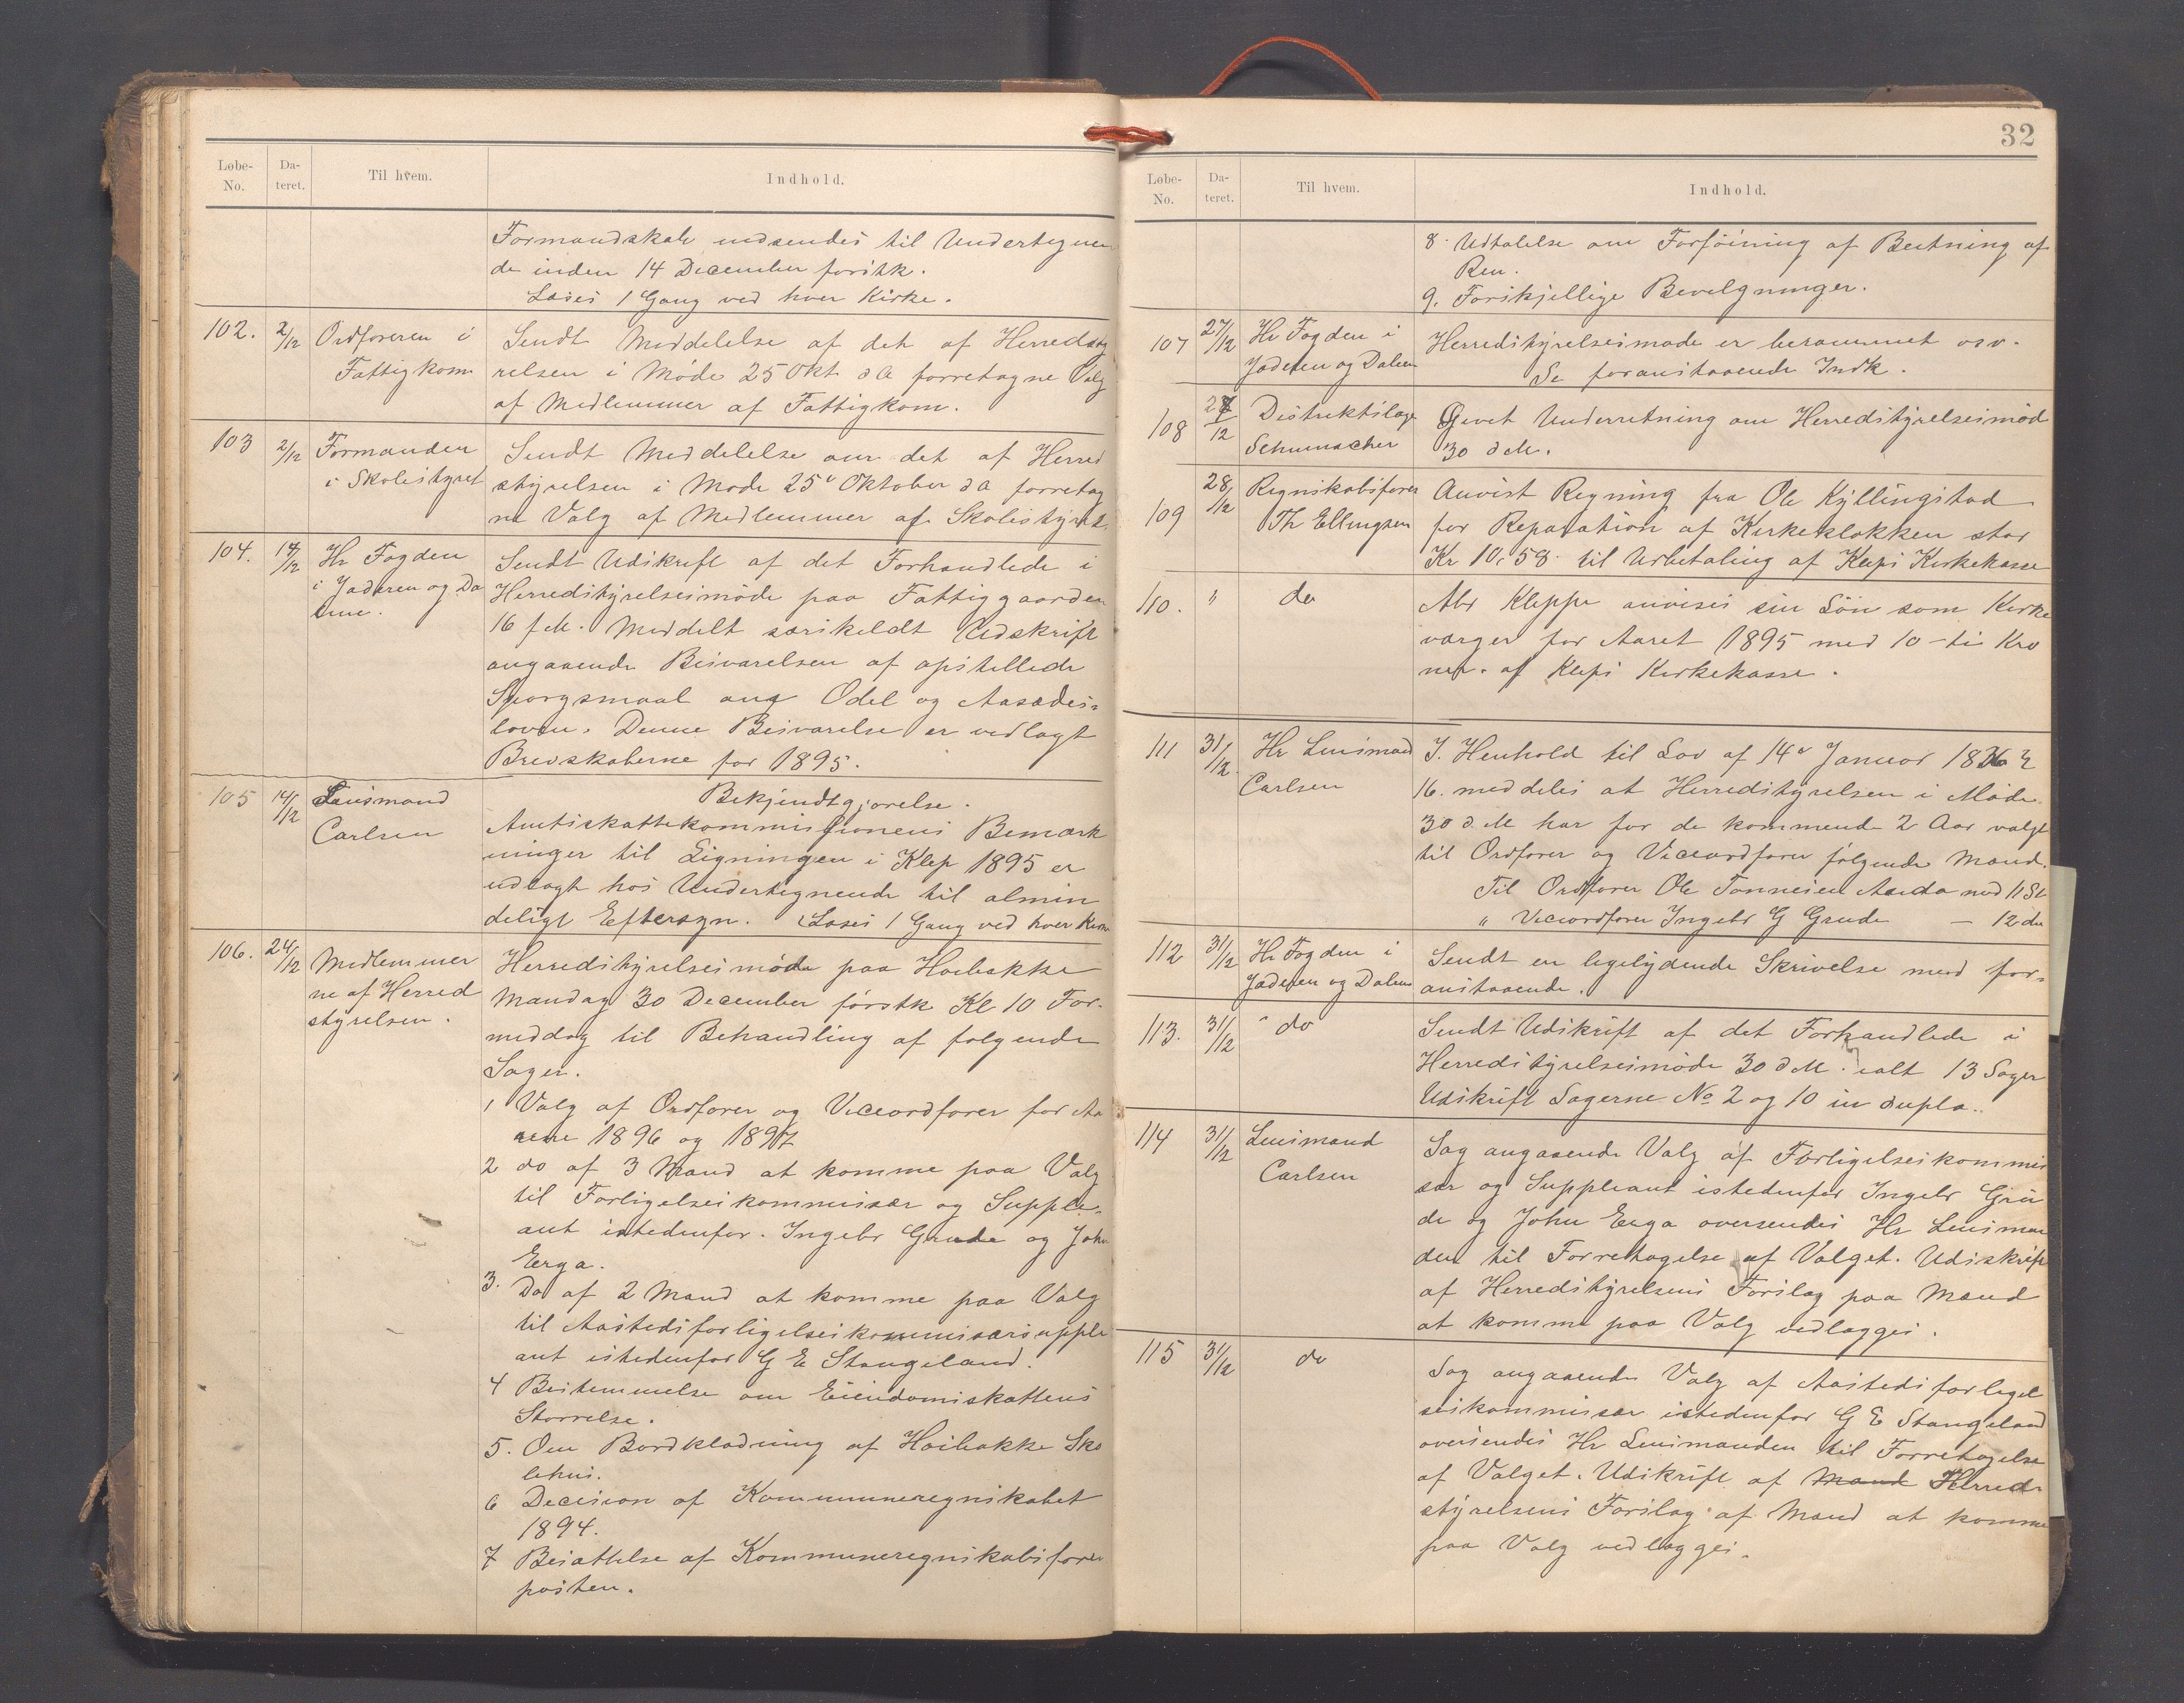 Løbe-
No.
Da-
teret.
Til hvem.
Indhold.
Formandskab indsendes til Undertegnen
de inden 14 December førstk.
Læses 1 Gang ved hver Kirke.
102. 2/12 Ordføreren i
Fattigkom
Sendt Meddelelse af det af Herredsty
relsen i Møde 25 Okt d A foretagne Valg
af Medlemmer af Fattigkom.
103 2/12 Formanden
i Skolestyret
Sendt Meddelelse om det af Herred
styrelsen i Møde 25' Oktober d A forretag
ne Valg af Medlemmer af Skolestyret.
104. 14/12 Hr Fogden
i Jæderen og Da
lene.
Sendt Udskrift af det Forhandlede i
Herredstyrelsesmøde paa Fattiggaarden
16 f M. Meddelt særskeldt Udskrift
angaaende Besvarelsen af opstillede
Spørgsmaal ang Odel og Aasædes-
loven. Denne Besvarelse er vedlagt
Brevskaberne for 1895.
105 14/12 Lensmand
Carlsen
Bekjendtgjørelse.
Amtsskattekommissionens Bemærk
ninger til Ligningen i Klep 1895 er
udlagt hos Undertegnende til almin
deligt Eftersyn. Læses 1 Gang ved hver Kirke
106. 24/12 Medlemmer
ne af Herred
styrelsen.
Herredstyrelsesmøde paa Høibakke
Mandag 30 December førstk Kl 10 For-
meddag til Behandling af følgende
Sager.
1 Valg af Ordfører og Viceordfører for Aa
rene 1896 og 1897
2 do af 3 Mænd at komme paa Valg
til Forligelseskommisær og Supple-
ant istedenfor. Ingebr Grude og John
Erga.
3. Do af 2 Mænd at komme paa Valg
til Aastedsforligelseskommisærsupple
ant istedenfor G E Stangeland.
4 Bestemmelse om Eiendomsskattens
Størrelse.
5. Om Bordklædning af Høibakke Sko
lehus.
6 Decision af Kommuneregnskabet
1894.
7 Besættelse af Kommuneregnskabsfører
posten.
32
Løbe-
No.
Da-
teret.
Til hvem.
Indhold.
8. Udtalelse om Forføining af Beitning af
Ren.
9. Forskjellige Bevelgninger.
107 27/12 Hr Fogden i
Jæderen og Dalene
Herredstyrelsesmøde er berammet osv.
Se foranstaaende Indk.
108 28/12 Distriktslæge
Schumacher
Givet Underretning om Herredstyrelsesmøde
30 d M.
109 28/12 Regnskabsfører
Th Ellingsen
Anvist Regning fra Ole Kyllingstad
for Reparation af Kirkeklokken stor
Kr 10,58. til Udbetaling af Kleps Kirkekasse
110. " do
Abr Kleppe anvises sin Løn som Kirke
værger for Aaret 1895 med 10 - ti Kro
ner. af Kleps Kirkekasse.
111 31/12. Hr Lensmand
Carlsen
I. Henhold til Lov af 14' Januar 18
16. meddeles at Herredstyrelsen i Møde
30 d. M har for de kommende 2 Aar valgt
til Ordfører og Viceordfører følgende Mænd.
Til Ordfører Ole Tønnesen Anda med 11 St
" Viceordfører Ingebr G Grude — 12 do
112 31/12 Hr Fogden i
Jæderen og Dalene
Sendt en legelydende Skrivelse med for-
anstaaende.
113. 31/12 " do
Sendt Udskrift af det Forhandlede i
Herredstyrelsesmøde 30 d M. ialt 13 Sager
Udskrift Sagerne No 2 og 10 in dupla.
114 31/12 Lensmand
Carlsen
Sag angaaende Valg af Forligelseskommis
sær og Suppleant istedenfor Ingebr Gru
de og John Erga oversendes Hr Lensman
den til Forretagelse af Valget. Udskrift
af Herredstyrelsens Forslag paa Mænd
at komme paa Valg vedlægges.
115 31/12 do
Sag angaaende Valg af Aastedsforligel
seskommisær istedenfor G E Stangeland
oversendes Hr Lensmanden til Forretagelse
af Valget. Udskrift af Mænd Herred-
styrelsens Forslag af Mænd at komme
paa Valg vedlægges.